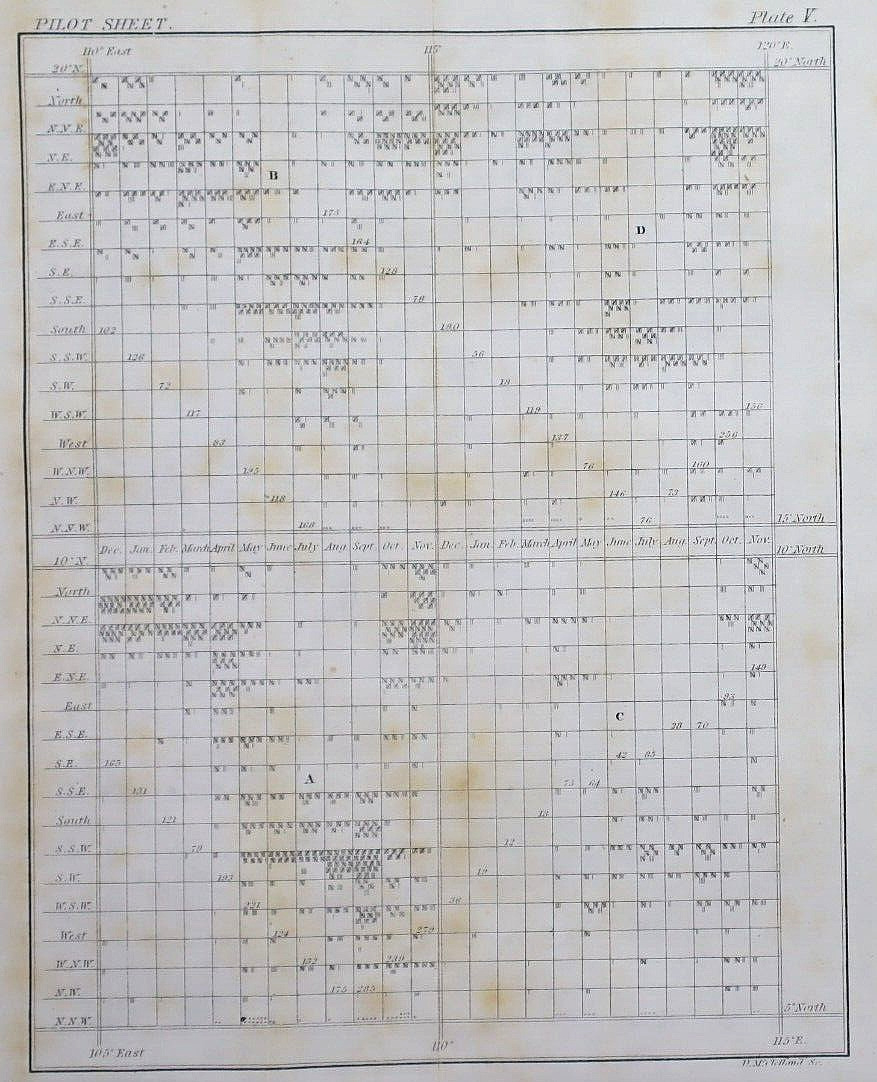 PILOT SHEET.
Plate V.
110° East 115° 120° E.
20° N. 20° North
North
N.N.E.
N.E.
B
E.N.E.
East 175
D
E.S.E. 164
S.E. 128
S.S.E. 78
South 102 190
S.S.W. 126 56
S.W. 72 19
W.S.W. 117 119 156
West 83 137 256
W.N.W. 195 76 160
N.W. 118 146 73
N.N.W. 168 76 15° North
Dec. Jan. Feb. March April May June July Aug. Sept. Oct. Nov. Dec. Jan. Feb. March April May June July Aug. Sept. Oct. Nov.
10° N. 10° North
North
N.N.E.
N.E.
E.N.E. 149
East 93
C
E.S.E. 28 70
S.E. 165 42 85
A
S.S.E. 151 75 64
South 121 13
S.S.W. 79 12
S.W. 193 12
W.S.W. 221 36
West 124 279
W.N.W. 152 239
N.W. 175 285
N.N.W. 5° North
105° East 110° 115° E.
D. McClelland Sc.